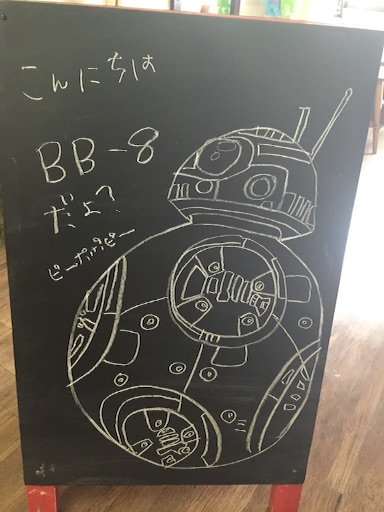 こんにちは
BB-8
だよ?
ピーポパピピー